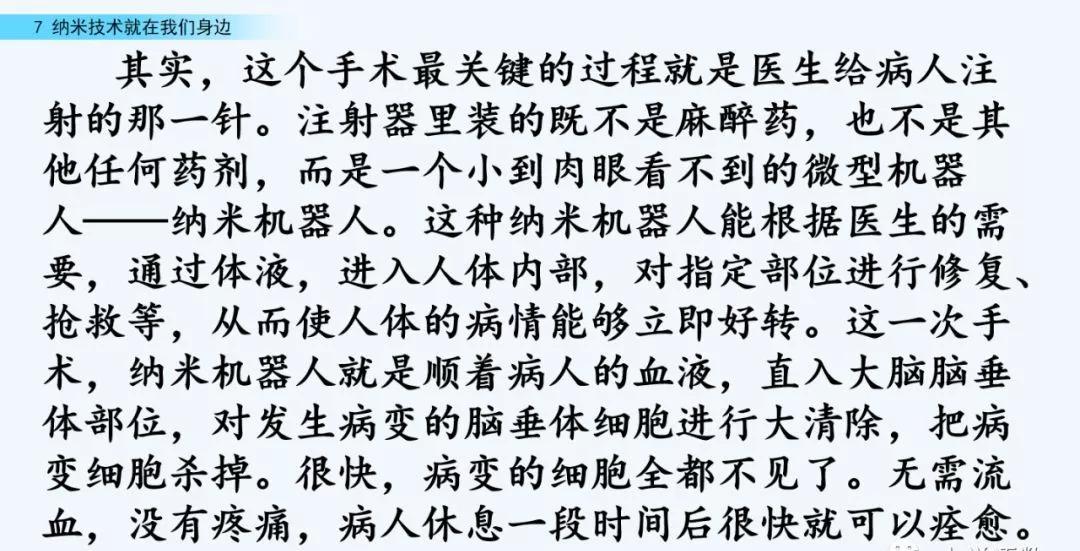 7 纳米技术就在我们身边
其实，这个手术最关键的过程就是医生给病人注
射的那一针。注射器里装的既不是麻醉药，也不是其
他任何药剂，而是一个小到肉眼看不到的微型机器
人——纳米机器人。这种纳米机器人能根据医生的需
要，通过体液，进入人体内部，对指定部位进行修复、
抢救等，从而使人体的病情能够立即好转。这一次手
术，纳米机器人就是顺着病人的血液，直入大脑脑垂
体部位，对发生病变的脑垂体细胞进行大清除，把病
变细胞杀掉。很快，病变的细胞全都不见了。无需流
血，没有疼痛，病人休息一段时间后很快就可以痊愈。